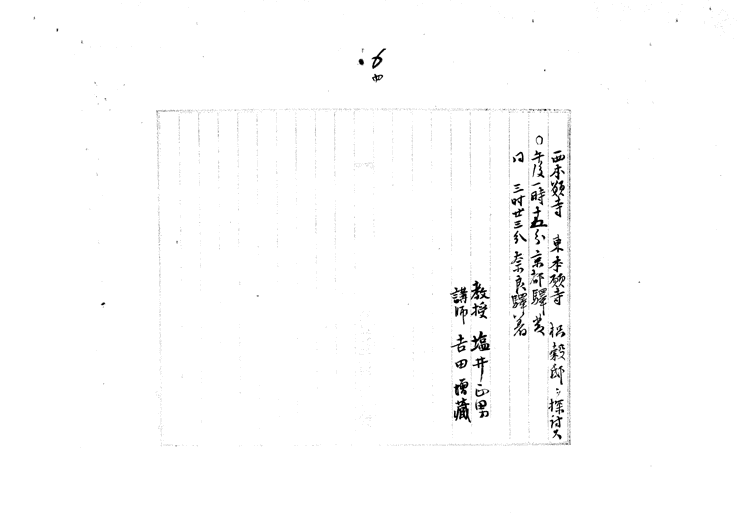 西本願寺 東本願寺 枳殻邸ヲ探討ス
○午後一時十五分京都驛発
同 三時廿三分奈良驛着
教授 塩井正男
講師 吉田増蔵